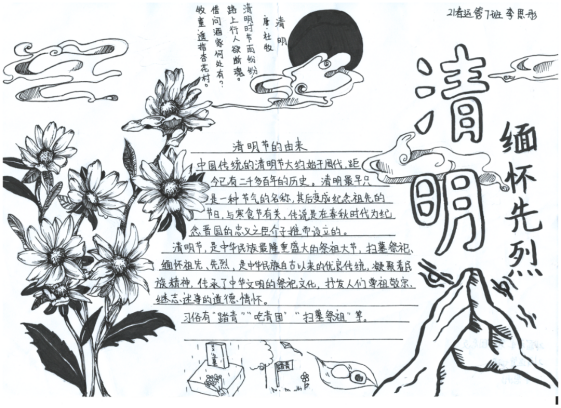 清明
唐 杜牧
清明时节雨纷纷
路上行人欲断魂。
借问酒家何处有？
牧童遥指杏花村。
清明
缅怀先烈
清明节的由来
中国传统的清明节大约始于周代，距
今已有二千多年的历史，清明最早只
是一种节气的名称，其后变成纪念祖先的
节日，与寒食节有关，传说是在春秋时代为纪
念晋国的忠义之臣介子推而设立的。
清明节，是中华民族最隆重盛大的祭祖大节，扫墓祭祀、
缅怀祖先、先烈，是中华民族自古以来的优良传统，凝聚着民
族精神，传承了中华文明的祭祀文化，抒发人们尊祖敬宗、
继志述事的道德情怀。
习俗有"踏青""吃青团""扫墓祭祖"等。